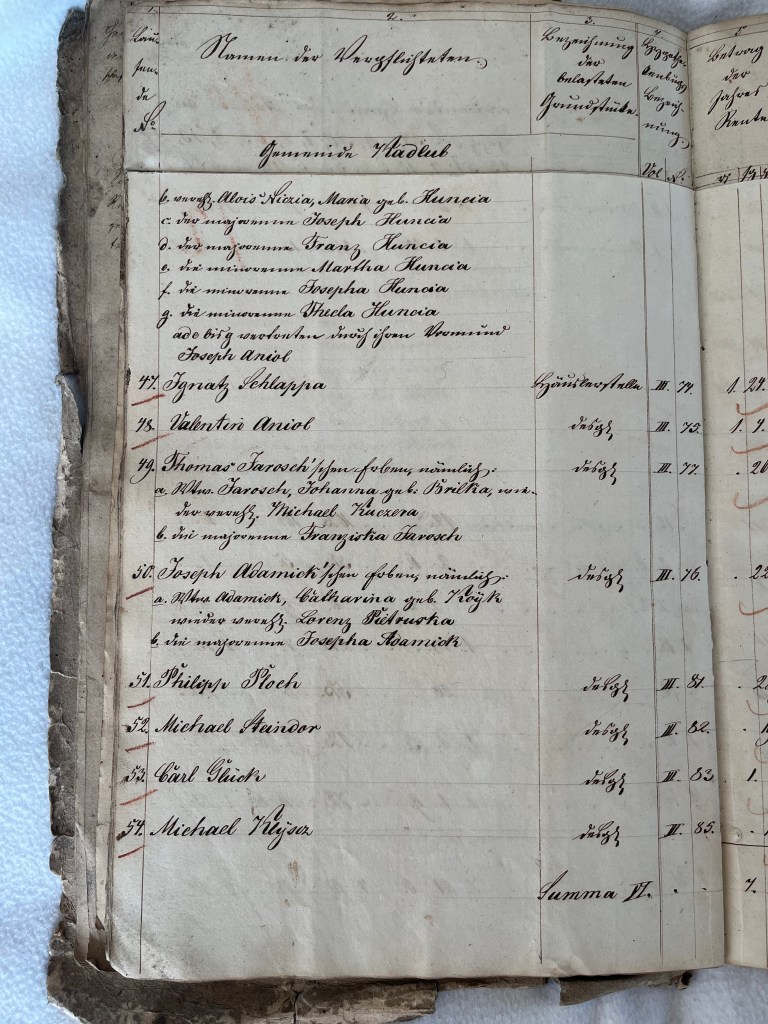 1.
2.
3.
4.
5.
Lau-
fen-
de
No.
Namen der Verpflichteten.
Bezeichnung
der
belasteten
Grundstücke.
Hypothe-
kenbuchs
Bezeich-
nung.
Betrag
der
Jahres
Rente
Gemeinde Kadlub
Vol No.
b. verehl. Alois Nizia, Maria geb. Huncia
c. der majorenne Joseph Huncia
d. der majorenne Franz Huncia
e. die minorenne Martha Huncia
f. die minorenne Josepha Huncia
g. die minorenne Thecla Huncia
ad e bis g vertreten durch ihren Vormund
Joseph Aniol
47. Ignatz Schlappa Häuslerstelle III. 74. 1. 24.
48. Valentin Aniol desgl. III. 75. 1.
49. Thomas Jarosch'schen Erben, nämlich: desgl. III. 77.
a. Wtw. Jarosch, Johanna geb. Krilka, wie-
der verehl. Michael Kuczera
b. die majorenne Franziska Jarosch
50. Joseph Adamick'schen Erben, nämlich: desgl. III. 76. . 22
a. Wtw. Adamick, Catharina geb. Koÿk
wieder verehl. Lorenz Pietruska
b. die majorenne Josepha Adamick
51. Philipp Ploch desgl. III. 81.
52. Michael Steindor desgl. III. 82.
53. Carl Glück desgl. III. 83 . 1.
54. Michael Klÿscz desgl. III. 85.
Summa VI. . . 7.